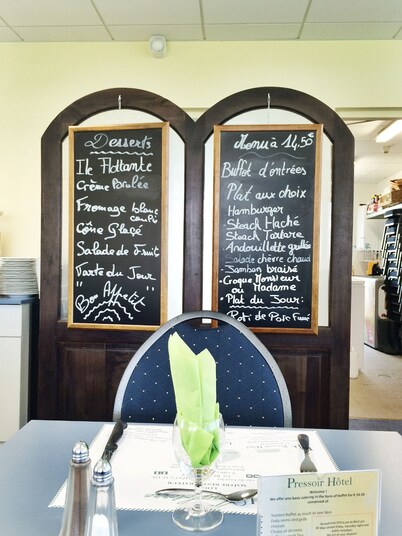 Desserts
Ile Flottante
Crème Brulée
Fromage blanc
Cône Glaçé
Salade de Fruit
Tarte du Jour
"Bon Appétit"
Menu à 14,50€
Buffet d'entrées
Plat aux choix
Hamburger
Steack Haché
Steack Tartare
Andouillette grillée
Salade chèvre chaud
- Jambon braisé
- Croque Monsieur
ou Madame
- Plat du Jour:
Roti de Porc Fumé
Pressoir Hôtel
Welcome !